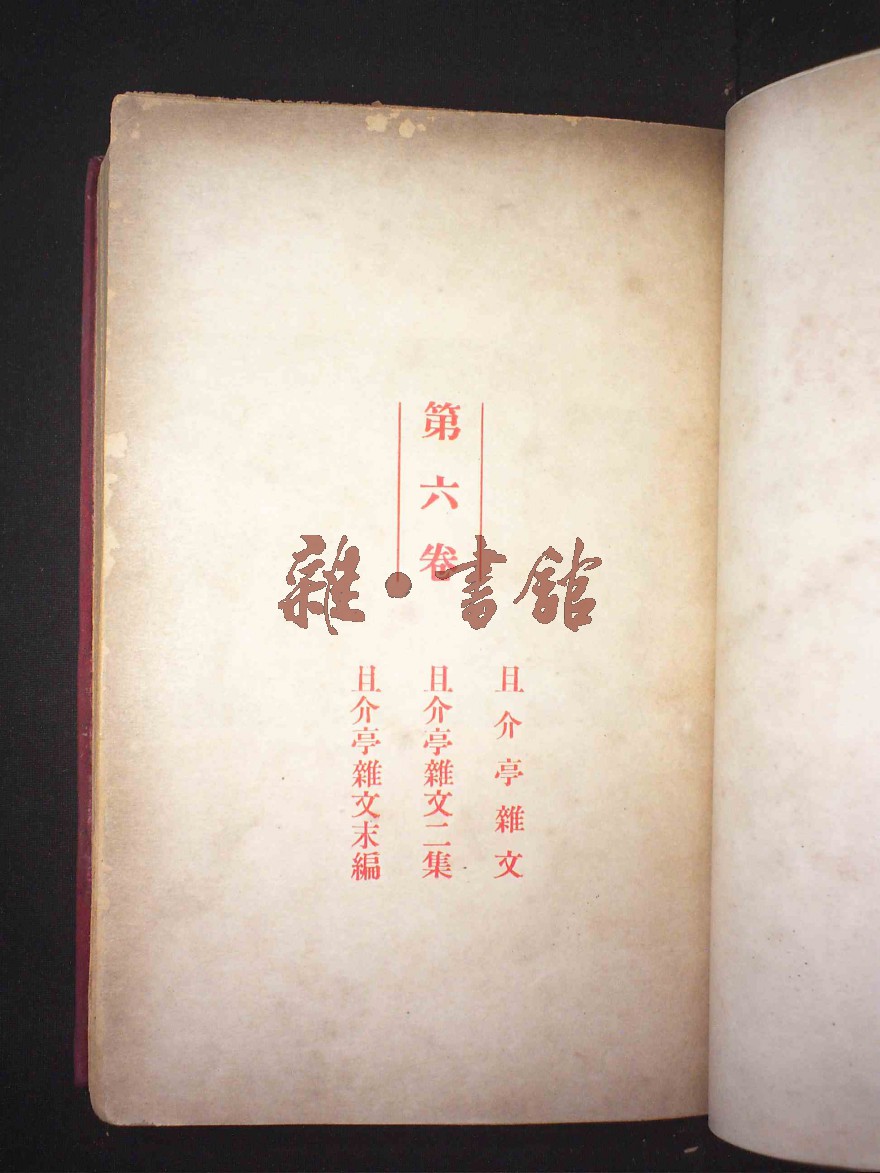 第六卷
雜·書館
且介亭雜文
且介亭雜文二集
且介亭雜文末編